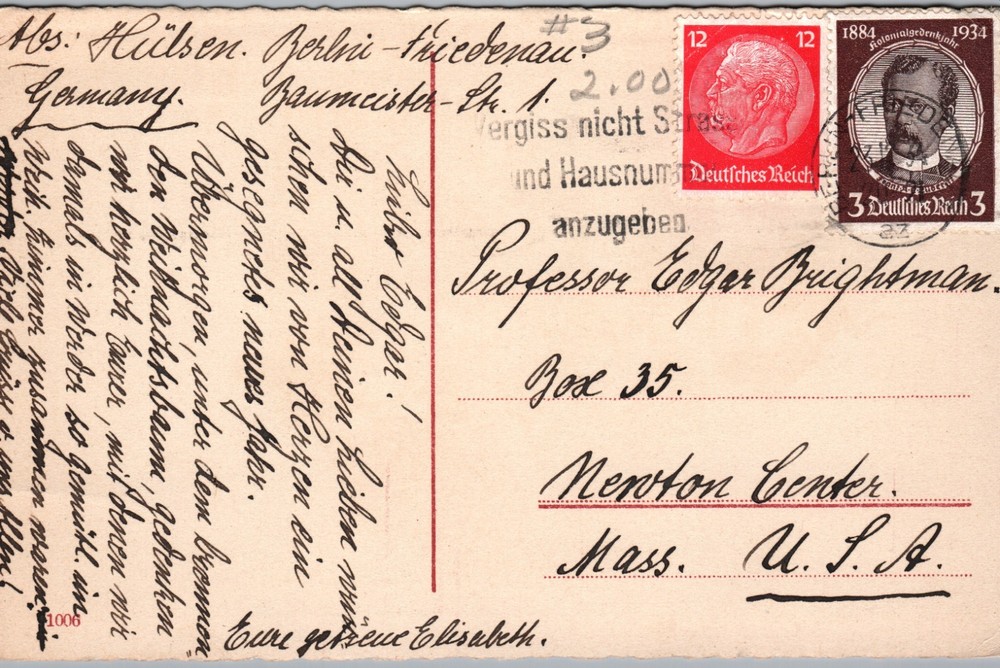 Abs: Hülsen. Berlin-Friedenau.
Germany. Baumeister-Str. 1.
#3
2.00
Vergiss nicht Stras
und Hausnum
anzugeben
12 12
Deutsches Reich
1884 1934
Kolonialgedenkjahr
3 Deutsches Reich 3
FRIEDE
a2
Professor Edgar Brightman.
Box 35.
Newton Center.
Mass. U. S. A.
Lieber Edgar!
Dir u. all Deinen Lieben wün
schen wir von Herzen ein
gesegnetes neues Jahr.
Übermorgen, unter dem brennen-
den Weihnachtsbaum, gedenken
wir herzlich Eurer, mit denen wir
damals in Werder so gemütl. im
Zimmer zusammen waren.
Euch Allen!
Eure getreue Elisabeth.
1006